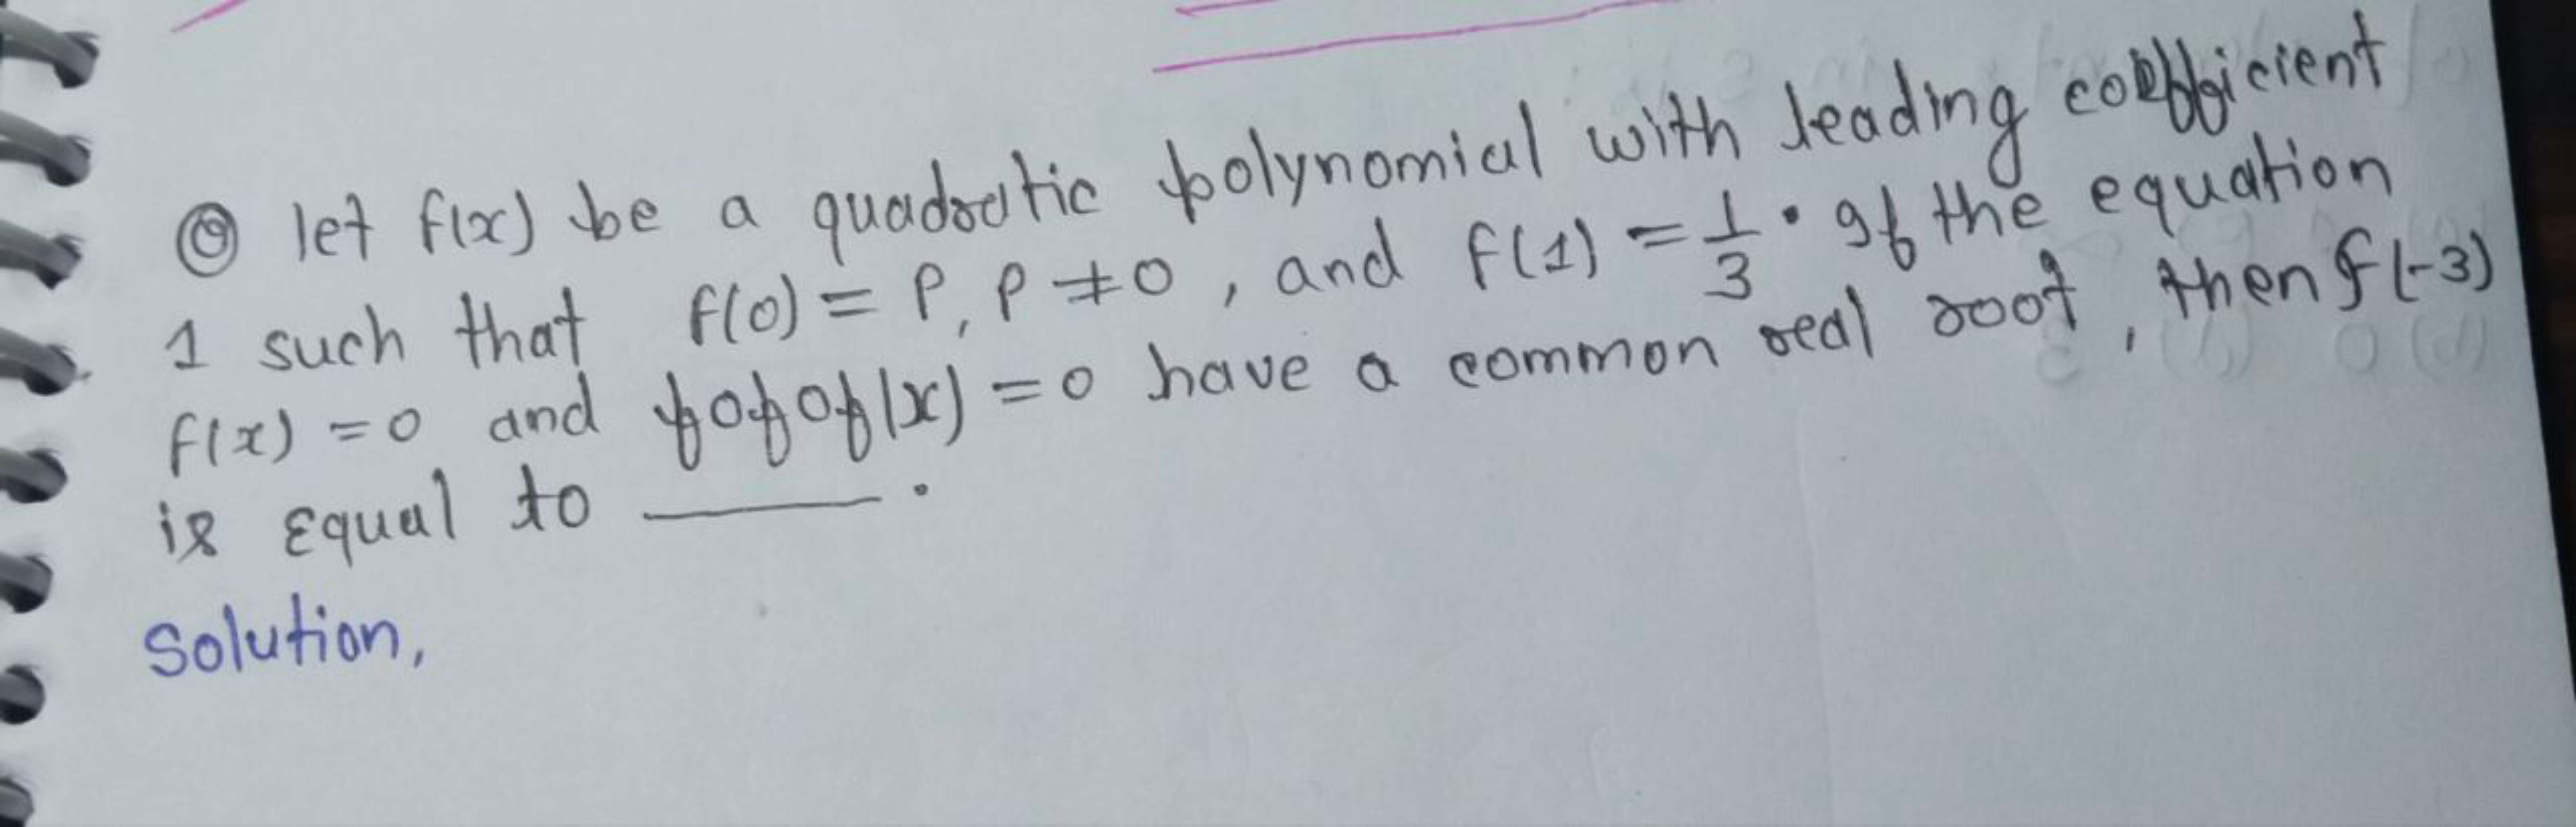 ⑨ let f(x) be a quadratic polynomial with leading coefficient
1 such that f(0) = P, P ≠ 0, and f(1) = 1/3 . If the equation
f(x) = 0 and fofof(x) = 0 have a common real root, then f(-3)
is equal to ______.
Solution,